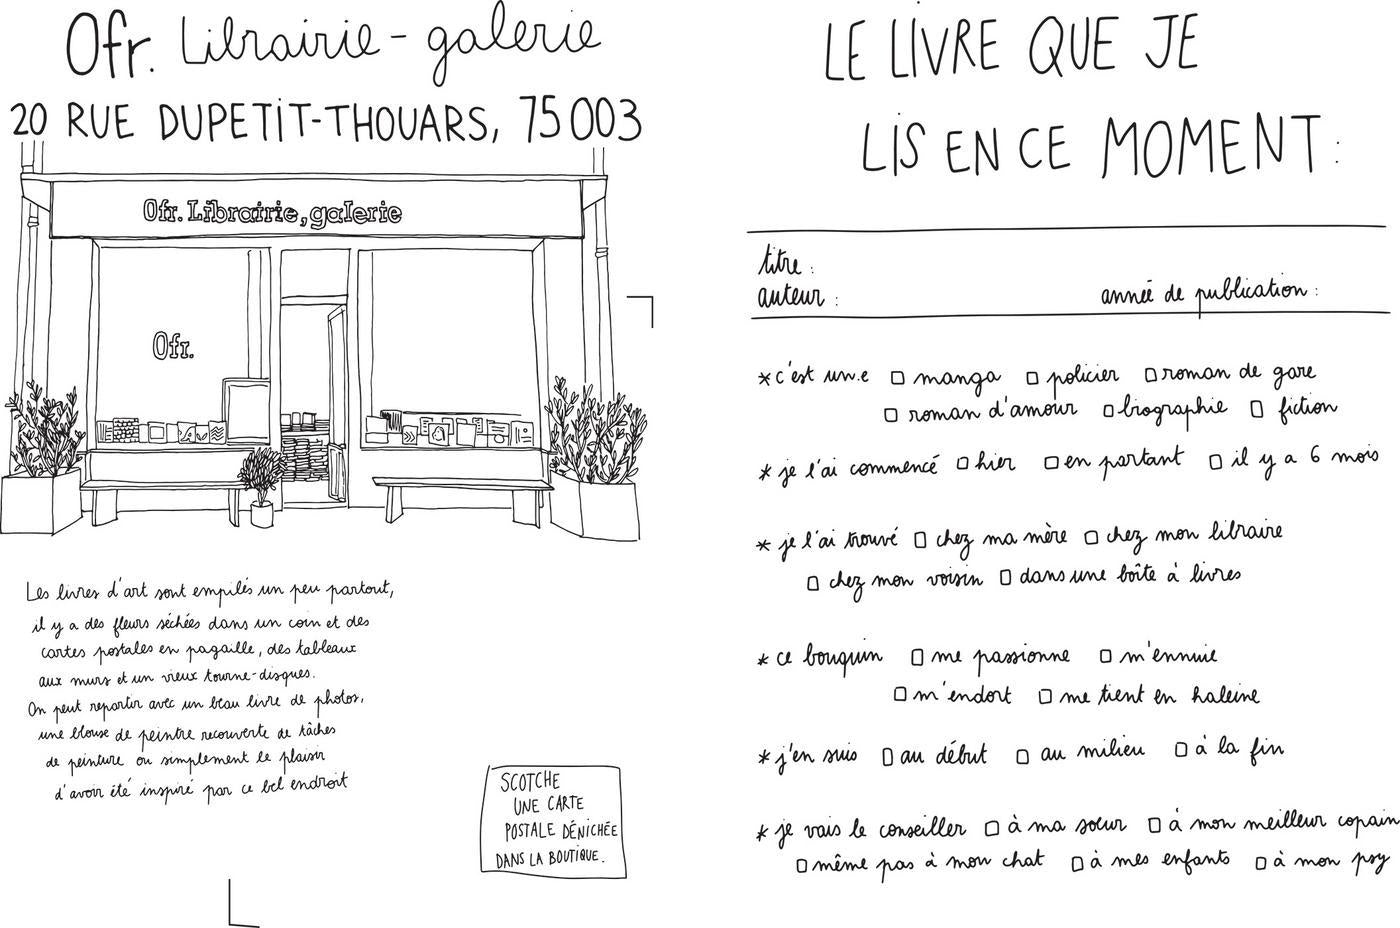 Ofr. Librairie - galerie
20 RUE DUPETIT-THOUARS, 75003
Ofr. Librairie, galerie
Ofr.
Les livres d'art sont empilés un peu partout,
il y a des fleurs séchées dans un coin et des
cartes postales en pagaille, des tableaux
aux murs et un vieux tourne-disques.
On peut repartir avec un beau livre de photos,
une blouse de peintre recouverte de tâches
de peinture ou simplement le plaisir
d'avoir été inspiré par ce bel endroit
SCOTCHE
UNE CARTE
POSTALE DÉNICHÉE
DANS LA BOUTIQUE.
LE LIVRE QUE JE
LIS EN CE MOMENT :
titre :
auteur : année de publication :
*c'est un.e □ manga □ policier □ roman de gare
□ roman d'amour □ biographie □ fiction
* je l'ai commencé □ hier □ en partant □ il y a 6 mois
* je l'ai trouvé □ chez ma mère □ chez mon libraire
□ chez mon voisin □ dans une boîte à livres
* ce bouquin □ me passionne □ m'ennuie
□ m'endort □ me tient en haleine
* j'en suis □ au début □ au milieu □ à la fin
* je vais le conseiller □ à ma sœur □ à mon meilleur copain
□ même pas à mon chat □ à mes enfants □ à mon psy